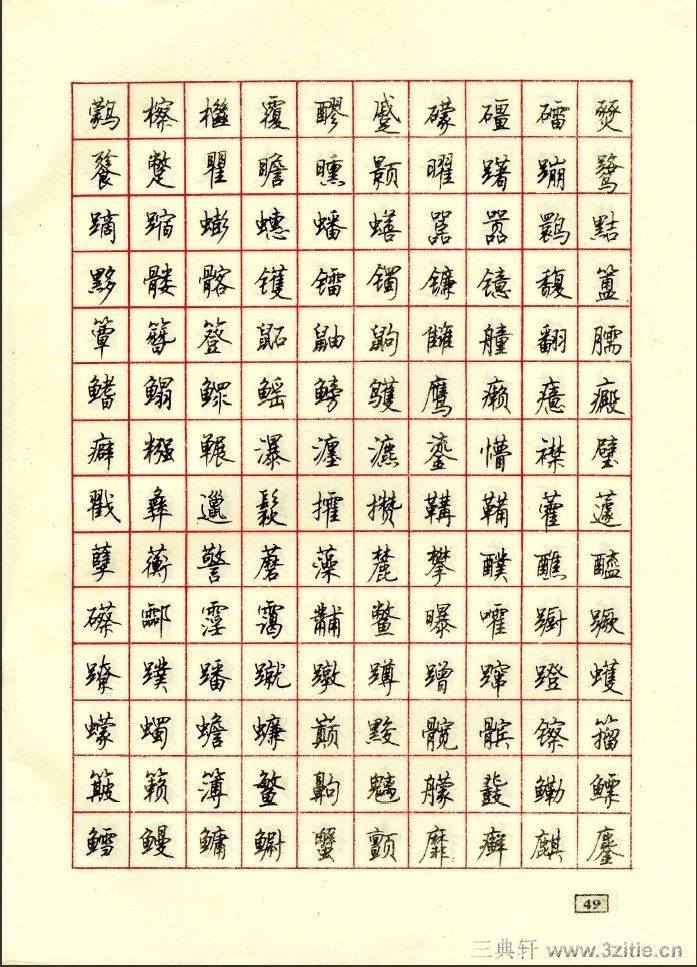 鹲檫檵覆醪蹙礞礓礌燹
餮蹩瞿瞻曛颢曜躇蹦鹭
蹢蹜蟛蟪蟠蟮嚚嚣鹮黠
黟髅髂镬镭镯镰镱馥簠
簟簪簦鼫鼬鼩雠艟翻臑
鳍鳎鳏鳐鳑鹱鹰癞癔癜
癖糨冁瀑瀍瀌鎏懵襟璧
戳彝邋鬏攉攒鞲鞴藿蘧
孽蘅警蘑藻麓攀醭醮醯
礤酃霪霭黼鳖曝嚯蹰蹶
蹽蹼蹯蹴蹾蹲蹭蹿蹬蠖
蠓蠋蟾蠊巅黢髋髌镲籀
簸籁簿鳘齁魑艨鼗鳓鳔
鳕鳗鳙鳚蟹颤靡癣麒鏖
49
三典轩 www.3zitie.cn